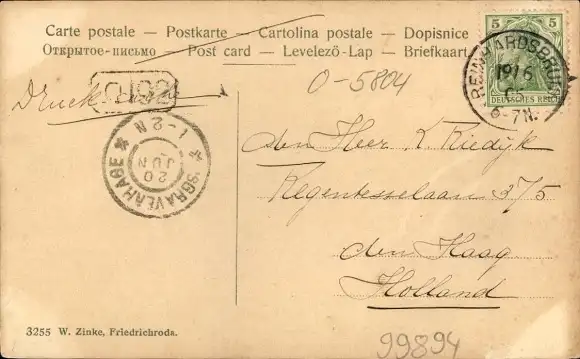 Carte postale — Postkarte — Cartolina postale — Dopisnice
Открытое-письмо — Post card — Levelező-Lap — Briefkaart
5 5
DEUTSCHES REICH
REINHARDSBRUNN
19/6
05
6-7N.
0-5804
Druck
'SGRAVENHAGE
1-2N
20
JUN
den Heer K. Riedijk
Regentesselaan 375
den Haag
Holland
3255 W. Zinke, Friedrichroda.
99894